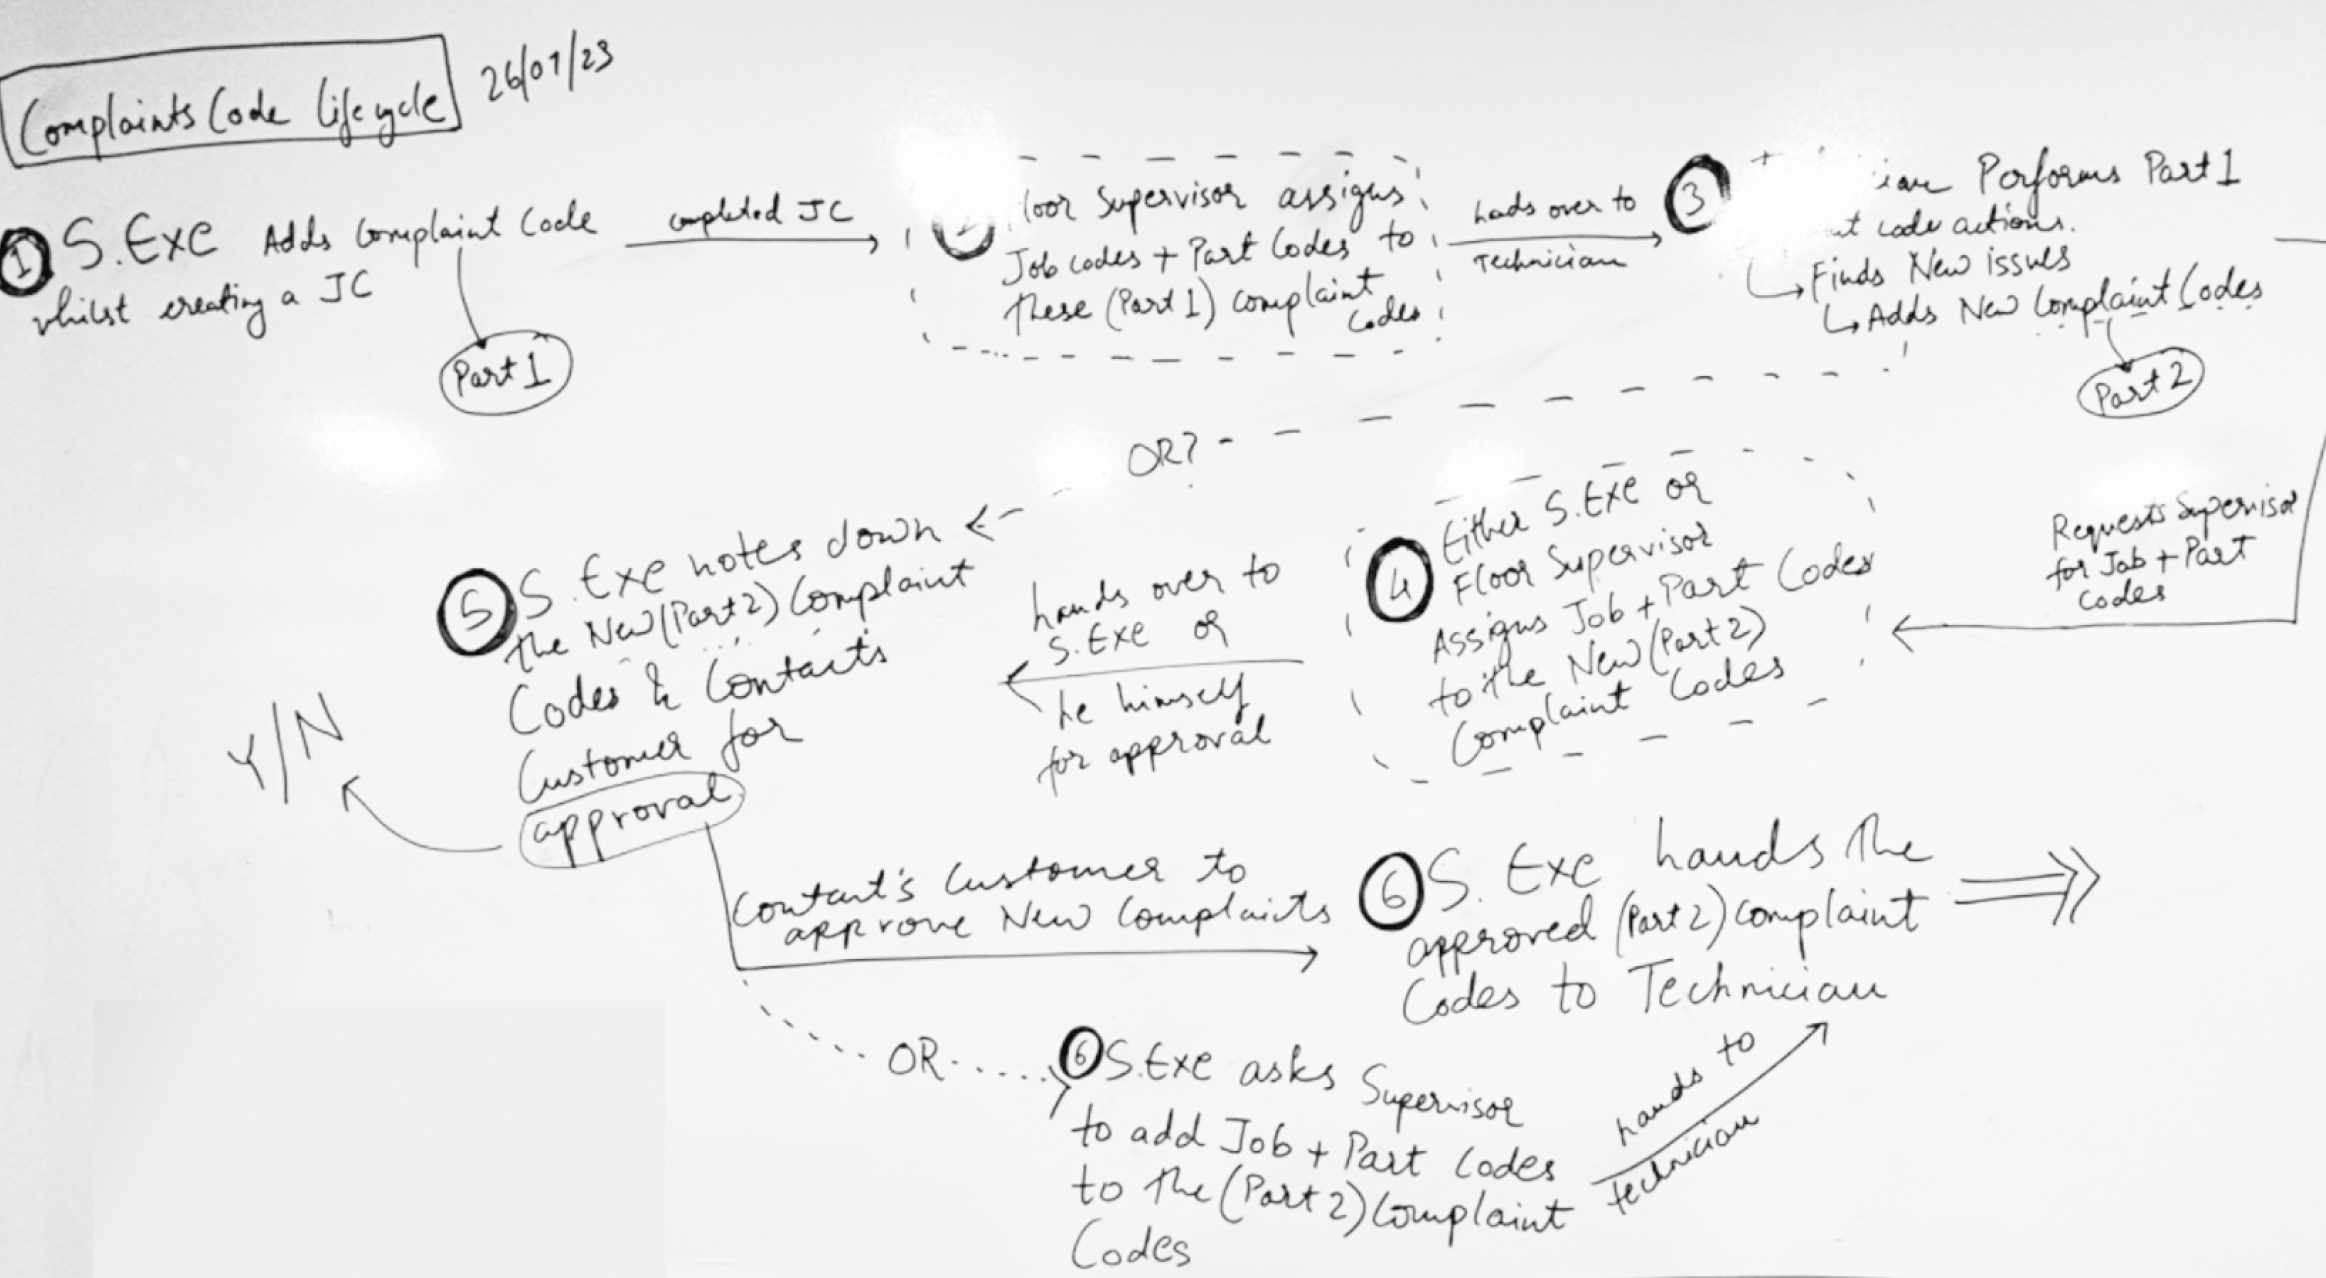 Complaints Code Lifecycle
26/07/23
1 S.Exe Adds Complaint Code
whilst creating a JC
Part 1
completed JC
2 loor Supervisor assigns
Job codes + Part Codes to
these (Part 1) complaint
Codes
hads over to
Technician
3 ian Performs Part 1
code actions.
Finds New issues
Adds New Complaint Codes
Part 2
OR?
Requests Supervisor
for Job + Part
Codes
4 Either S.Exe or
Floor Supervisor
Assigns Job + Part Codes
to the New (Part 2)
Complaint Codes
hands over to
S.Exe or
he himself
for approval
5 S.Exe notes down
the New (Part 2) Complaint
Codes & Contacts
Customer for
approval
Y/N
Contact's Customer to
approve New Complaints
6 S. Exe hands the
approved (Part 2) complaint
Codes to Technician
OR
6 S.Exe asks Supervisor
to add Job + Part Codes
to the (Part 2) Complaint
Codes
hands to
technician